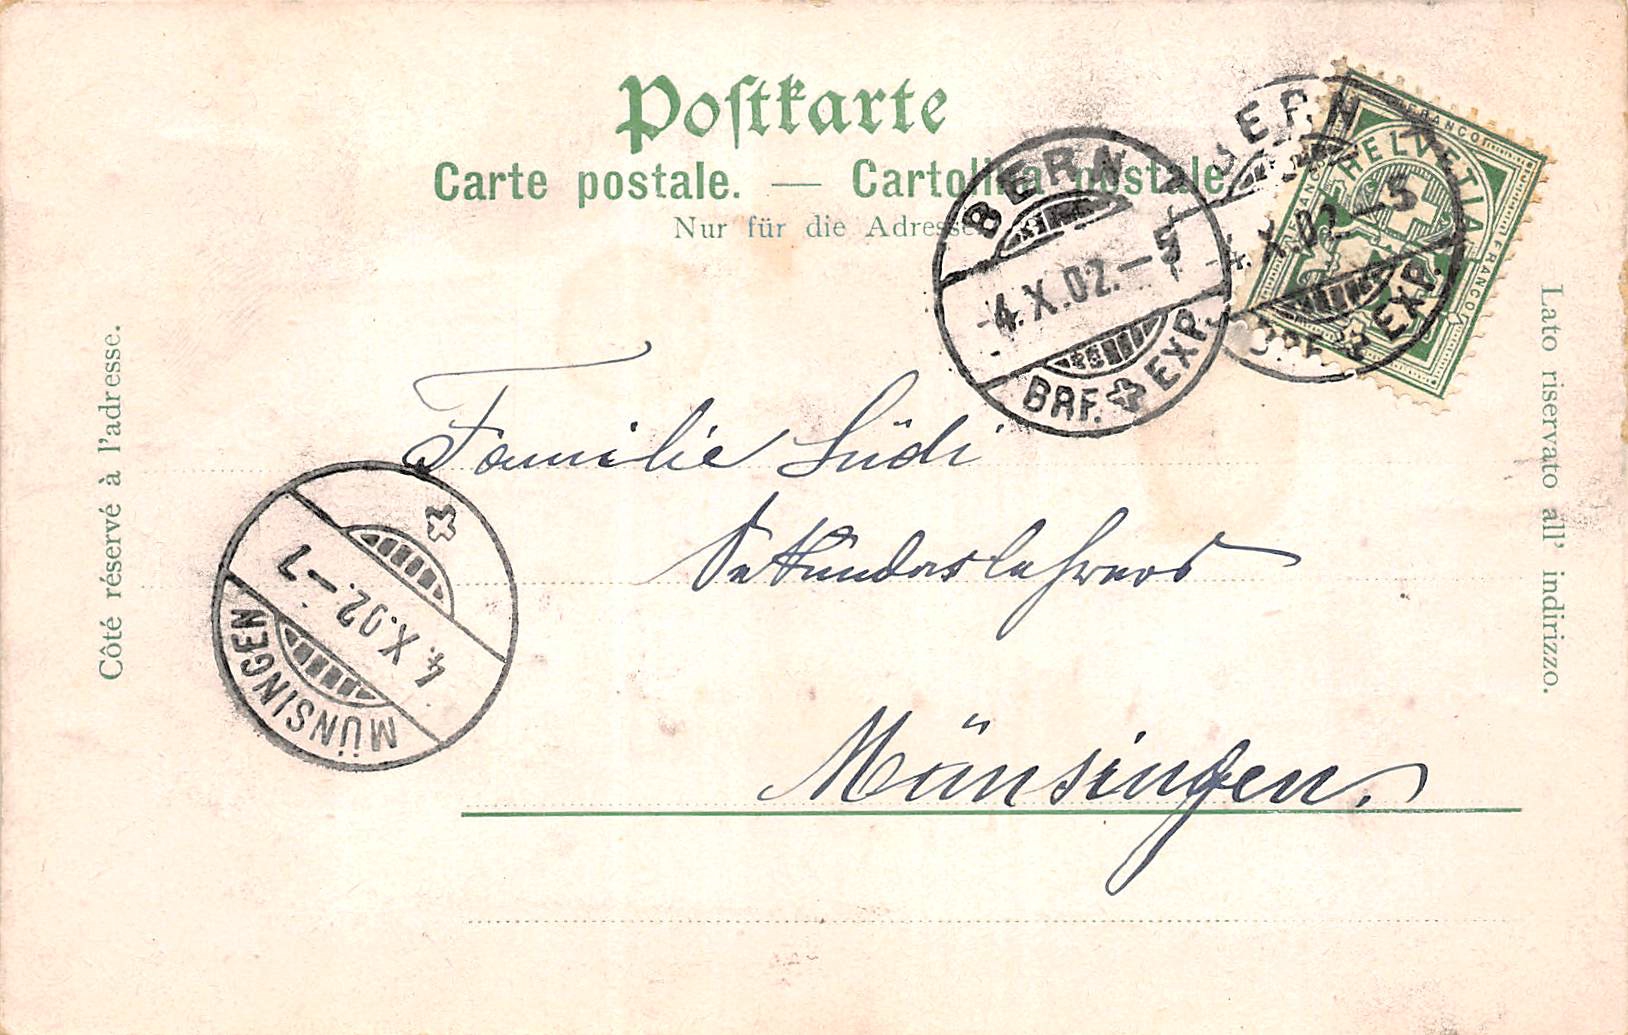 Postkarte
Carte postale. — Cartolina postale.
Nur für die Adresse.
Côté réservé à l'adresse.
Lato riservato all' indirizzo.
BERN
4.X.02.–5
BRF. EXP.
BERN
4.X.02.–5
BRF. EXP.
FRANCO
HELVETIA
FRANCO
FRANCO
Familie Lüdi
Sekundarlehrers
Münsingen.
4.X.02.–7
MÜNSINGEN